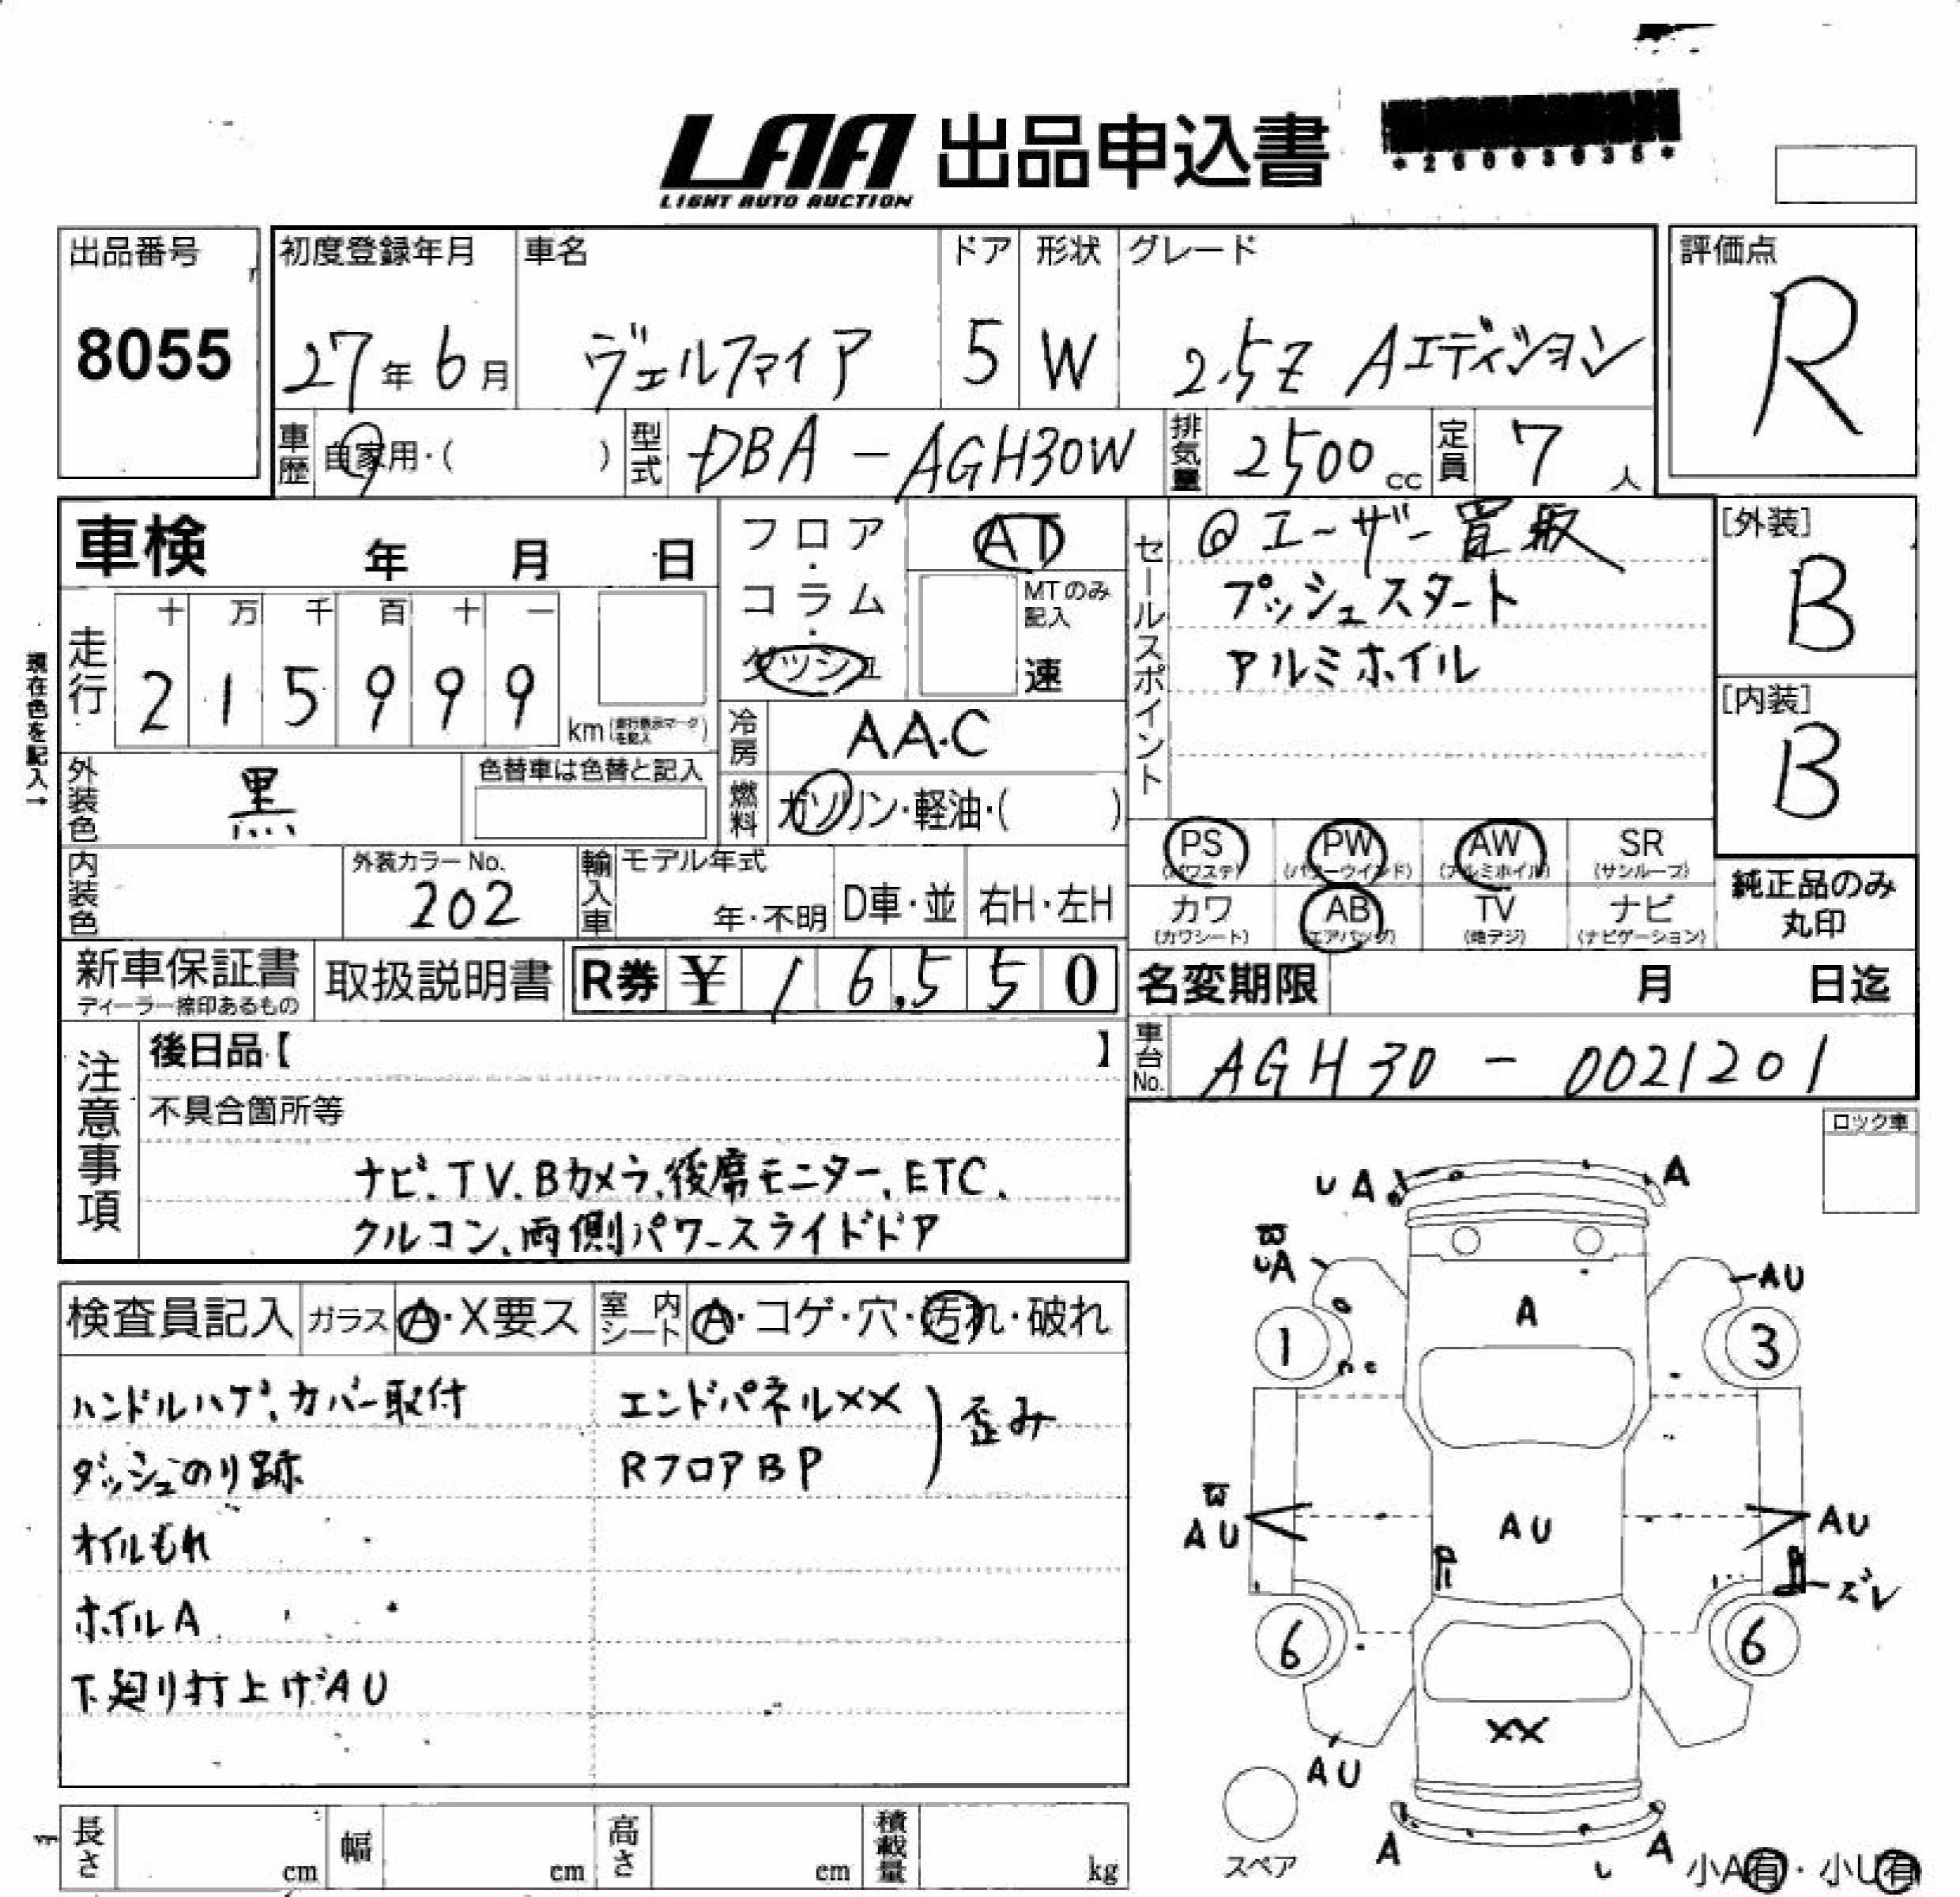 LAA 出品申込書
LIGHT AUTO AUCTION
出品番号 初度登録年月 車名 ドア 形状 グレード 評価点
8055 27年 6月 ヴェルファイア 5 W 2.5Z Aエディション R
車歴 自家用・( ) 型式 DBA-AGH30W 排気量 2500cc 定員 7人
車検 年 月 日
フロア・コラム・ダッシュ
AT
MTのみ記入
速
セールスポイント
@エーザー買取
プッシュスタート
アルミホイル
[外装]
B
[内装]
B
現在色を記入→
走行 十 万 千 百 十 一
2 1 5 9 9 9 km(走行表示マークを記入)
冷房 AA.C
外装色 黒 色替車は色替と記入
燃料 ガソリン・軽油・( )
内装色 外装カラーNo. 202
輸入車 モデル年式 年・不明 D車・並 右H・左H
PS (パワステ) PW (パワーウインド) AW (アルミホイル) SR (サンルーフ)
カワ (カワシート) AB (エアバッグ) TV (地デジ) ナビ (ナビゲーション)
純正品のみ
丸印
新車保証書 ディーラー捺印あるもの 取扱説明書 R券 ¥ 16,550
名変期限 月 日迄
車台No. AGH30-0021201
注意事項
後日品【 】
不具合箇所等
ナビ.TV.Bカメラ.後席モニター.ETC.
クルコン.両側パワースライドドア
ロック車
検査員記入 ガラス A・X要ス 室内シート A・コゲ・穴・汚れ・破れ
ハンドルハゲ.カバー取付 エンドパネルXX
ダッシュのり跡 RフロアBP
歪み
オイルもれ
ホイルA
下廻り打上げAU
U A A
UA AU
A
1 3
AU AU AU
ズレ
6 6
XX
AU
スペア
A A
小A有・小U有
長さ cm 幅 cm 高さ cm 積載量 kg